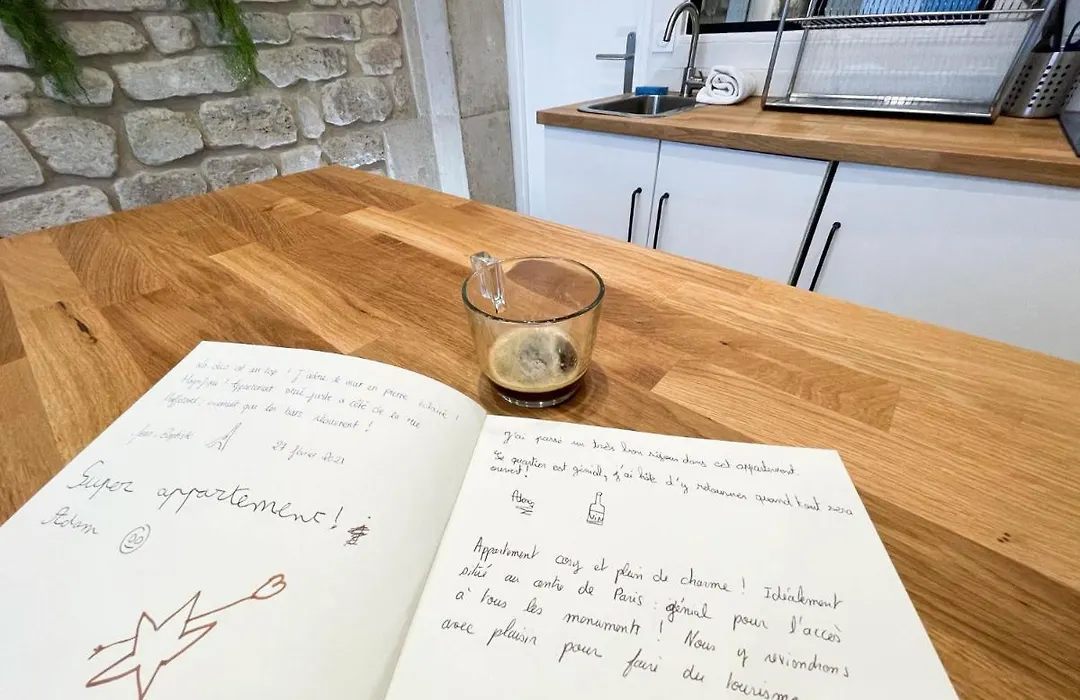 déco est au top ! J'adore le mur en pierre
Appartement situé juste à côté de la rue
que les bars réouvrent !
Jean-Baptiste
21 février 2021
Super appartement !
Adam
J'ai passé un très bon séjour dans cet appartement.
Le quartier est génial, j'ai hâte d'y retourner quand tout sera
ouvert !
VIN
Appartement cosy et plein de charme ! Idéalement
situé au centre de Paris : génial pour l'accès
à tous les monuments ! Nous y reviendrons
avec plaisir pour faire du tourisme